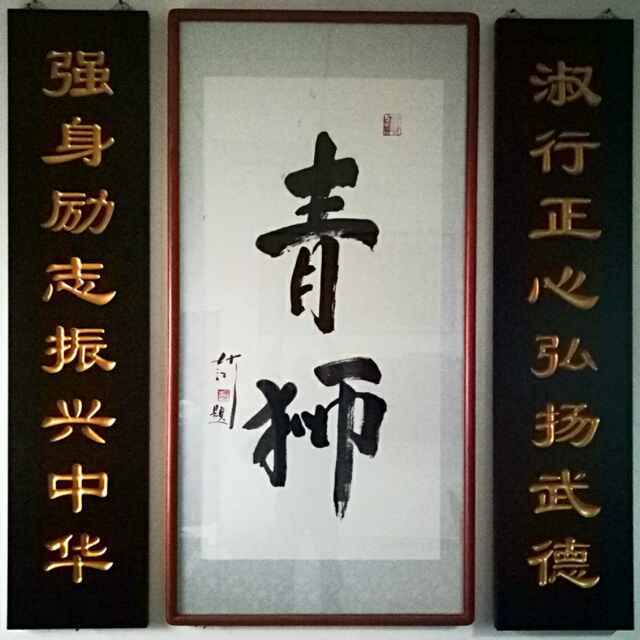 淑行正心弘扬武德
青狮
題
强身励志振兴中华